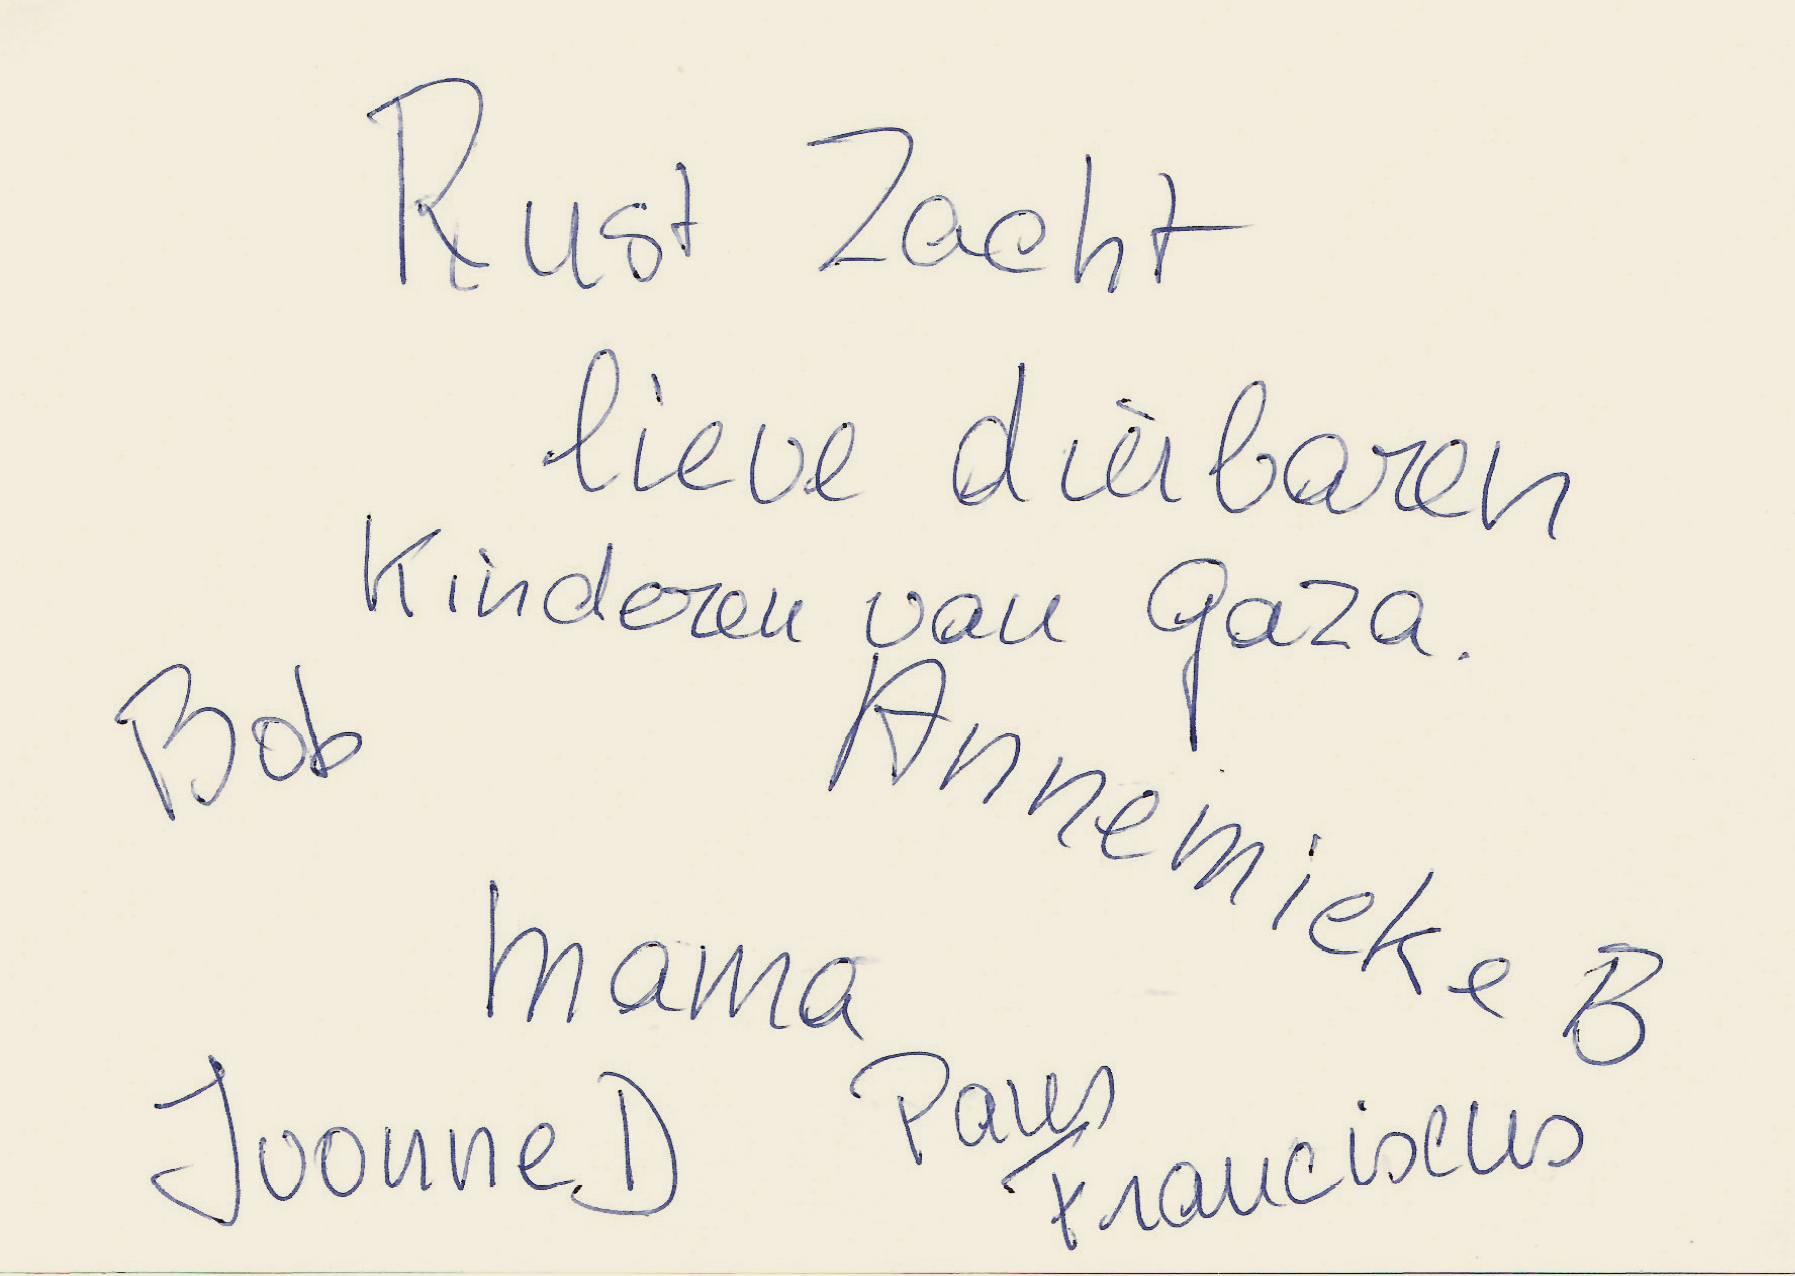 Rust Zacht
lieve dierbaren
Kinderen van Gaza.
Bob
Annemieke B
mama
Ivonne D
Paus
Franciscus